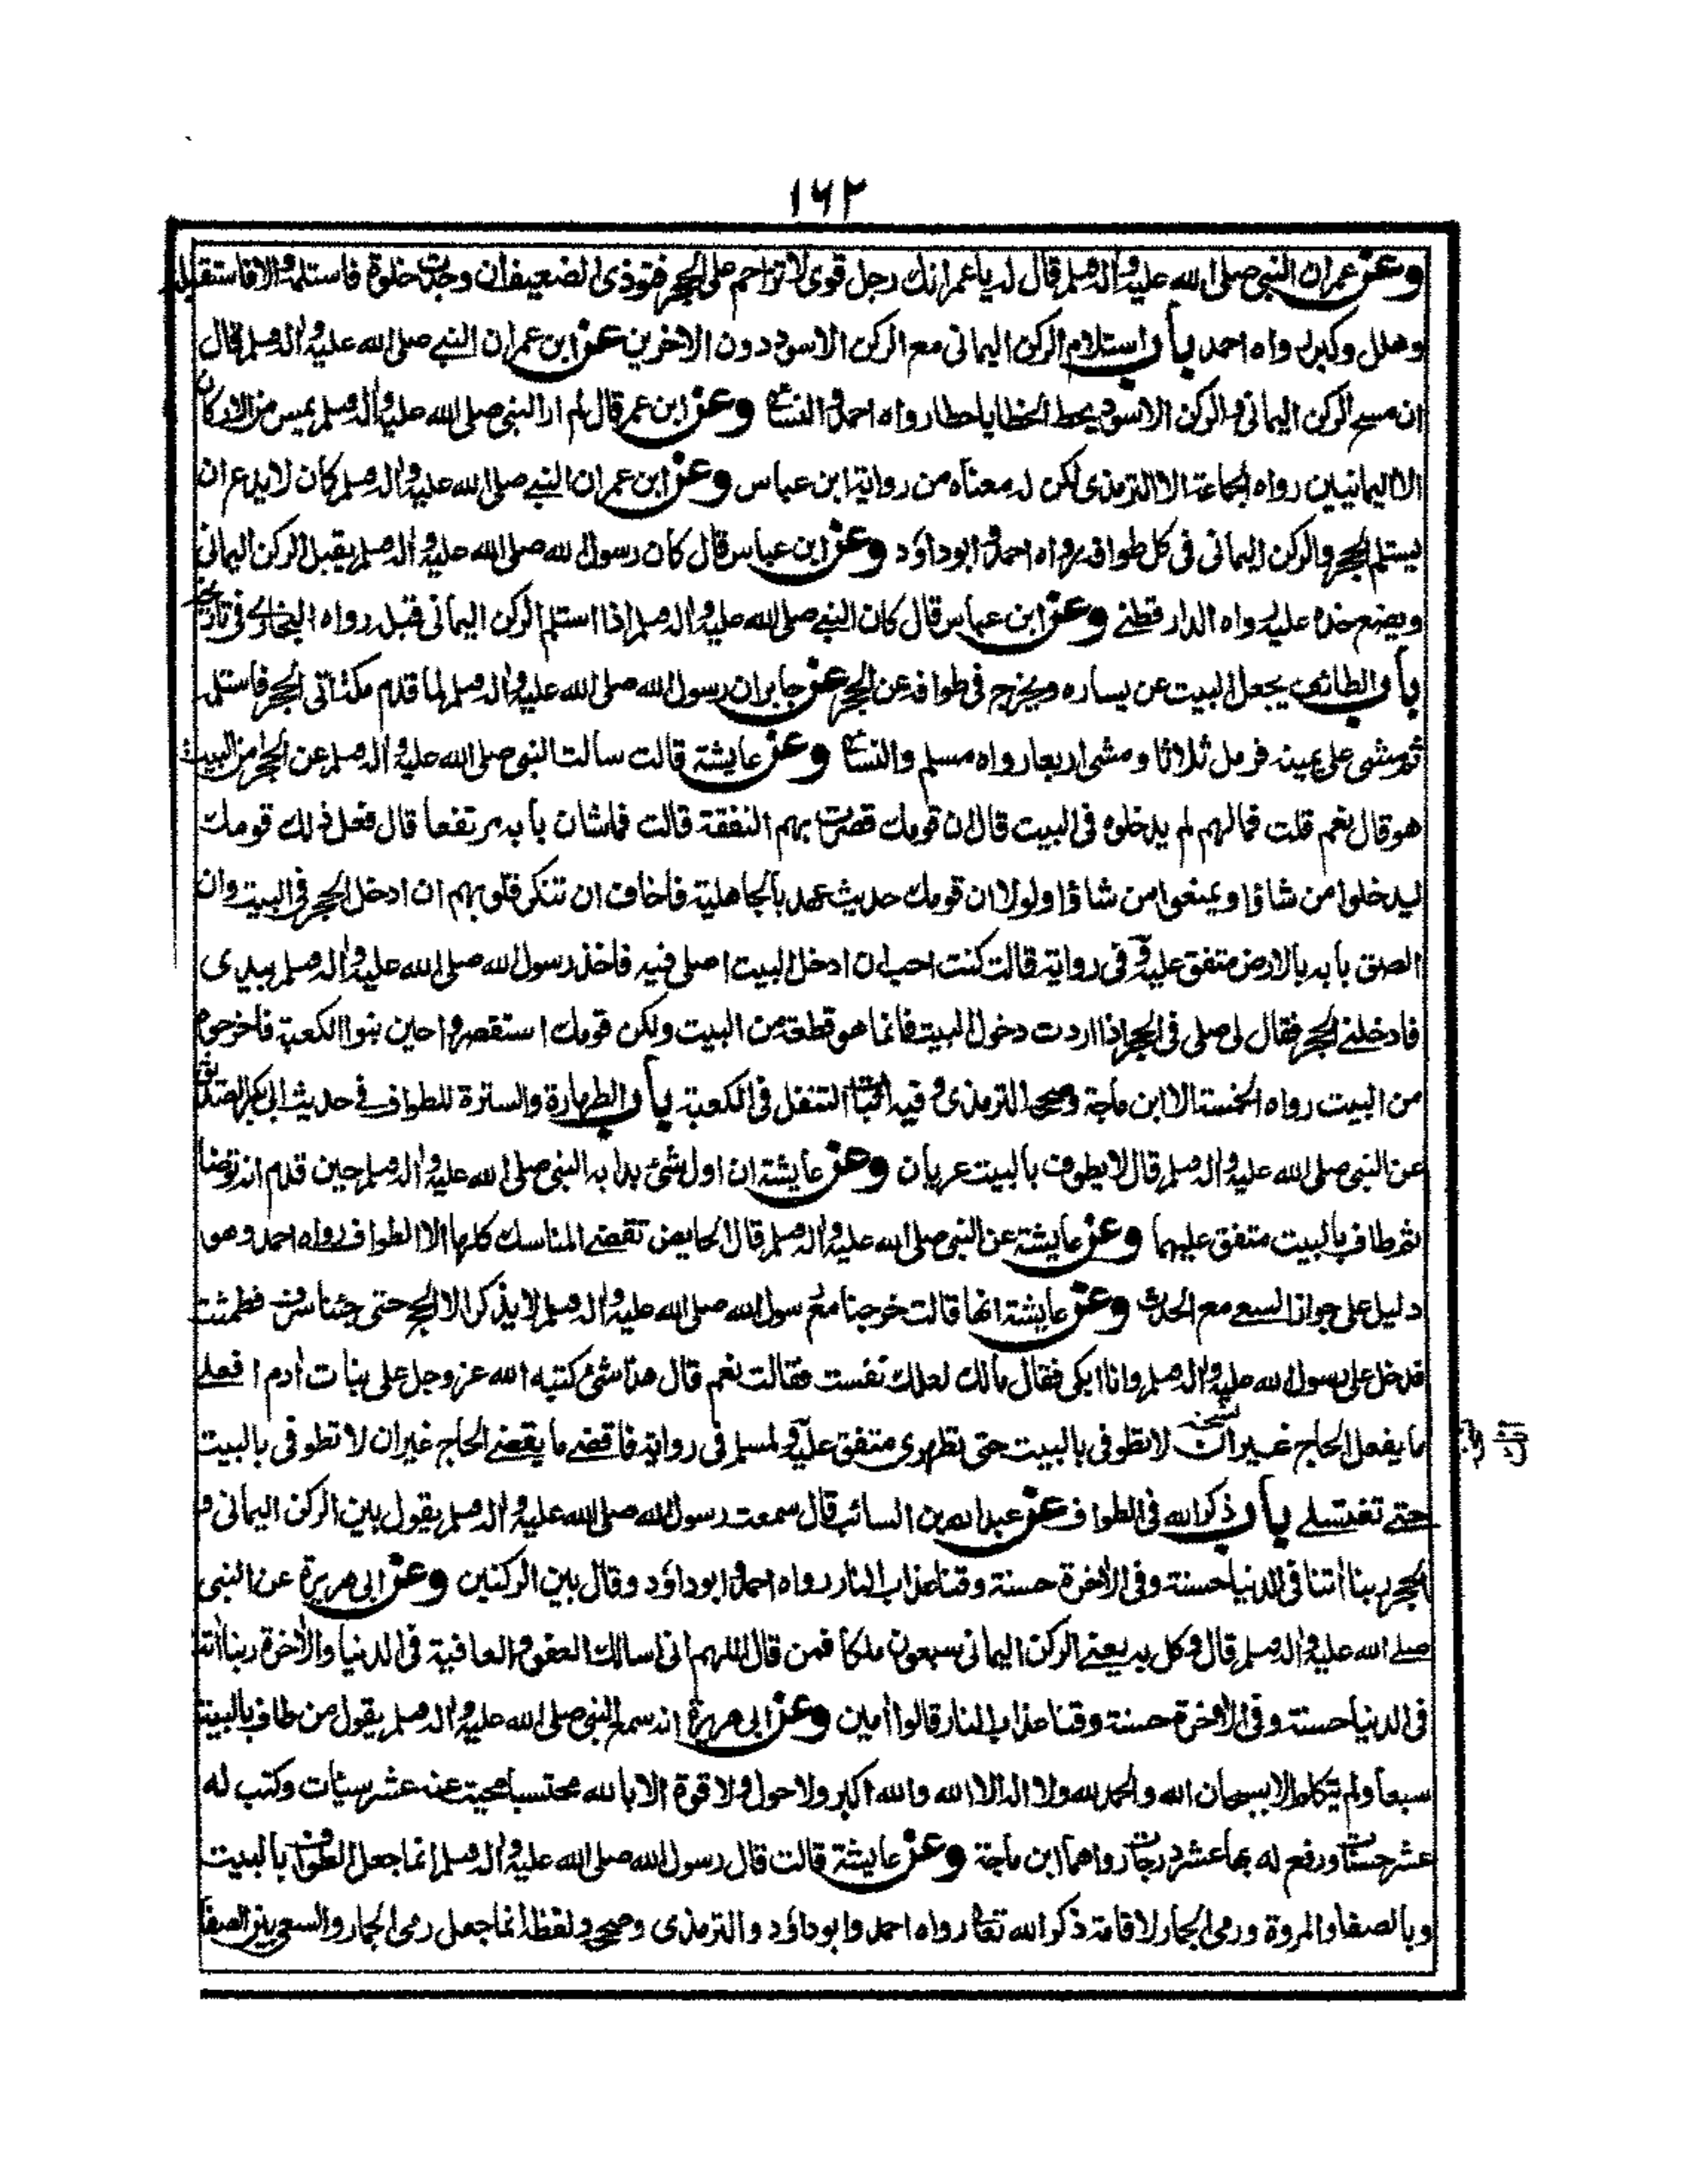 ١٦٢
وعن عمر ان النبي صلى الله عليه واله وسلم قال له يا عمر انك رجل قوى لا تزاحم على الحجر فتوذى الضعيف ان وجدت خلوة فاستلمه والا فاستقبله
وهلل وكبر رواه احمد باب استلام الركن اليمانى مع الركن الاسود دون الاخرين عن ابن عمر ان النبي صلى الله عليه واله وسلم قال
ان مسح الركن اليمانى والركن الاسود يحط الخطايا حطا رواه احمد والنسائى وعن ابن عمر قال لم ار النبي صلى الله عليه واله وسلم يمس من الاركان
الا اليمانيين رواه الجماعة الا الترمذى لكن له معناه من رواية ابن عباس وعن ابن عمر ان النبي صلى الله عليه واله وسلم كان لا يدع ان
يستلم الحجر والركن اليمانى فى كل طوافه رواه احمد وابو داؤد وعن ابن عباس قال كان رسول الله صلى الله عليه واله وسلم يقبل الركن اليمانى
ويضع خده عليه رواه الدارقطنى وعن ابن عباس قال كان النبي صلى الله عليه واله وسلم اذا استلم الركن اليمانى قبله رواه البخارى فى تاريخه
باب الطائف يجعل البيت عن يساره ويخرج فى طوافه عن الحجر عن جابر ان رسول الله صلى الله عليه واله وسلم لما قدم مكة اتى الحجر فاستلمه
ثم مشى على يمينه فرمل ثلاثا ومشى اربعا رواه مسلم والنسائى وعن عايشة قالت سالت النبي صلى الله عليه واله وسلم عن الحجر امن البيت
هو قال نعم قلت فما لهم لم يدخلوه فى البيت قال ان قومك قصرت بهم النفقة قالت فما شان بابه مرتفعا قال فعل ذلك قومك
ليدخلوا من شاؤا ويمنعوا من شاؤا ولولا ان قومك حديث عهد بالجاهلية فاخاف ان تنكر قلوبهم ان ادخل الحجر فى البيت وان
الصق بابه بالارض متفق عليه وفى رواية قالت كنت احب ان ادخل البيت اصلى فيه فاخذ رسول الله صلى الله عليه واله وسلم بيدى
فادخلنى الحجر فقال لى صلى فى الحجر اذا اردت دخول البيت فانما هو قطعة من البيت ولكن قومك استقصروا حين بنوا الكعبة فاخرجوه
من البيت رواه الخمسة الا ابن ماجة وصححه الترمذى وفيه اثبات التنفل فى الكعبة باب الطهارة والسترة للطواف فى حديث ابى بكر الصديق
عن النبي صلى الله عليه واله وسلم قال لا يطوف بالبيت عريان وعن عايشة ان اول شئ بدا به النبي صلى الله عليه واله وسلم حين قدم انه توضا
ثم طاف بالبيت متفق عليهما وعن عايشة عن النبي صلى الله عليه واله وسلم قال الحايض تقضى المناسك كلها الا الطواف رواه احمد وهو
دليل على جواز السعى مع الحدث وعن عايشة انها قالت خرجنا مع رسول الله صلى الله عليه واله وسلم لا يذكر الا الحج حتى جئنا سرف فطمثت
فدخل على رسول الله صلى الله عليه واله وسلم وانا ابكى فقال مالك لعلك نفست فقالت نعم قال هذا شئ كتبه الله عز وجل على بنات ادم افعلى
ما يفعل الحاج غير ان لا تطوفى بالبيت حتى تطهرى متفق عليه ولمسلم فى رواية فاقضى ما يقضى الحاج غير ان لا تطوفى بالبيت
حتى تغتسلى باب ذكر الله فى الطواف عن عبد الله بن السائب قال سمعت رسول الله صلى الله عليه واله وسلم يقول بين الركن اليمانى و
الحجر ربنا اتنا فى الدنيا حسنة وفى الاخرة حسنة وقنا عذاب النار رواه احمد وابو داؤد وقال بين الركنين وعن ابى هريرة عن النبي
صلى الله عليه واله وسلم قال وكل به يعنى الركن اليمانى سبعون ملكا فمن قال اللهم انى اسالك العفو والعافية فى الدنيا والاخرة ربنا اتنا
فى الدنيا حسنة وفى الاخرة حسنة وقنا عذاب النار قالوا امين وعن ابى هريرة انه سمع النبي صلى الله عليه واله وسلم يقول من طاف بالبيت
سبعا ولم يتكلم الا بسبحان الله والحمد لله ولا اله الا الله والله اكبر ولا حول ولا قوة الا بالله محتسبا محيت عنه عشر سيئات وكتب له
عشر حسنات ورفع له بها عشر درجات رواهما ابن ماجة وعن عايشة قالت قال رسول الله صلى الله عليه واله وسلم انما جعل الطواف بالبيت
وبالصفا والمروة ورمى الجمار لاقامة ذكر الله تعالى رواه احمد وابو داؤد والترمذى وصححه ولفظه انما جعل رمى الجمار والسعى بين الصفا